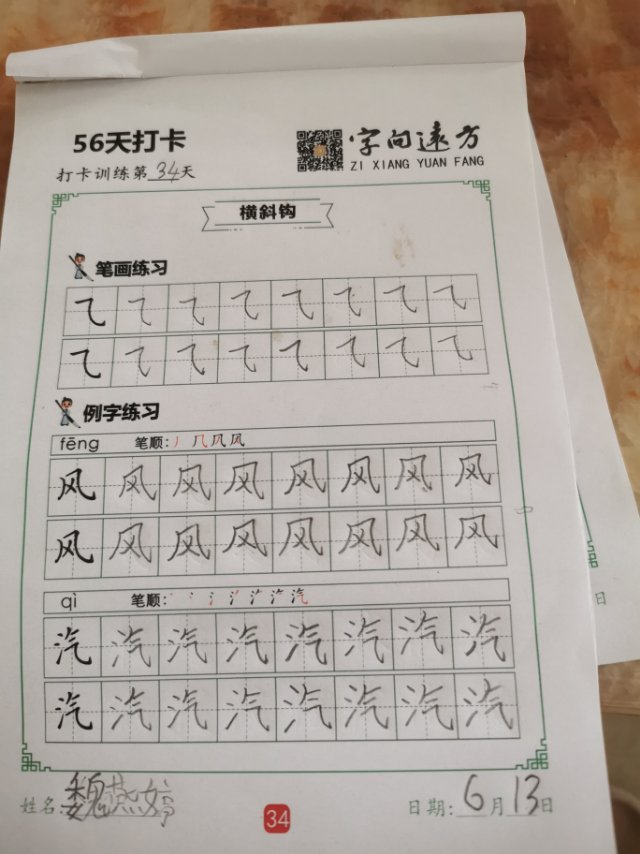 56天打卡
字向遠方
ZI XIANG YUAN FANG
打卡训练第34天
横斜钩
笔画练习
⺄ ⺄ ⺄ ⺄ ⺄ ⺄ ⺄ ⺄
⺄ ⺄ ⺄ ⺄ ⺄ ⺄ ⺄ ⺄
例字练习
fēng 笔顺: 丿 几 风 风
风 风 风 风 风 风 风 风
风 风 风 风 风 风 风 风
qì 笔顺: 丶 丶 氵 氵 汽 汽 汽
汽 汽 汽 汽 汽 汽 汽 汽
汽 汽 汽 汽 汽 汽 汽 汽
姓名: 魏燕婷
34
日期: 6月13日
日